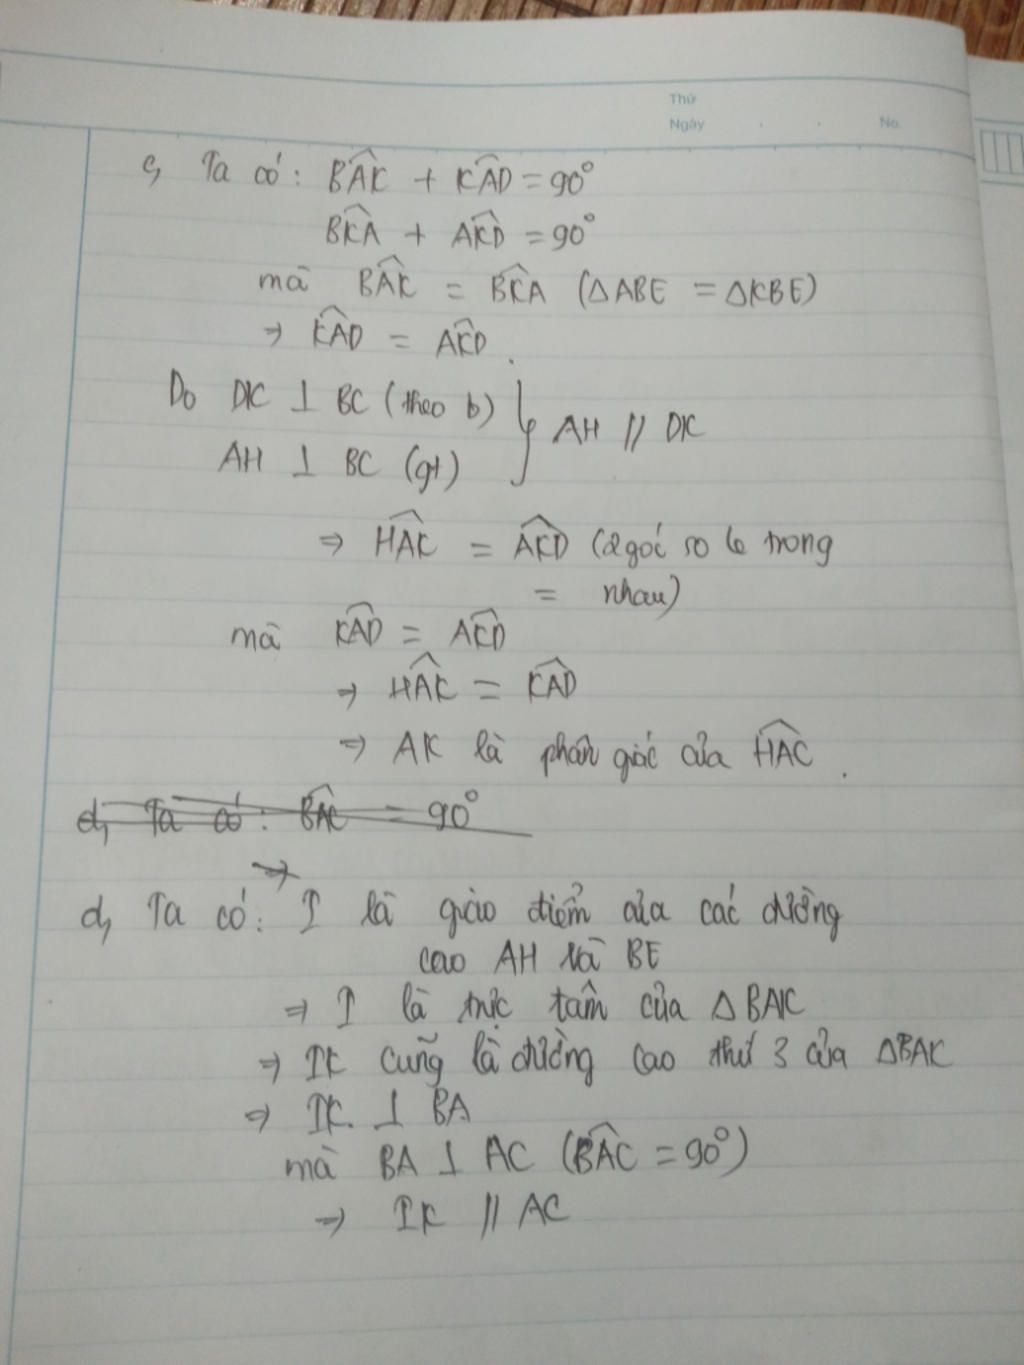 Thứ
Ngày . . No.
c, Ta có: BÂK + KÂD = 90°
BK̂A + AK̂D = 90°
mà BÂK = BK̂A (ΔABE = ΔKBE)
⇒ KÂD = AK̂D.
Do DK ⊥ BC (theo b)
AH ⊥ BC (gt)
} AH // DK
⇒ HÂK = AK̂D (2 góc so le trong
= nhau)
mà KÂD = AK̂D
⇒ HÂK = KÂD
⇒ AK là phân giác của HÂC.
d, Ta có: BÂC = 90°
⇒
d, Ta có: I là giao điểm của các đường
cao AH và BE
⇒ I là trực tâm của ΔBAK
⇒ IK cũng là đường cao thứ 3 của ΔBAK
⇒ IK ⊥ BA
mà BA ⊥ AC (BÂC = 90°)
⇒ IK // AC